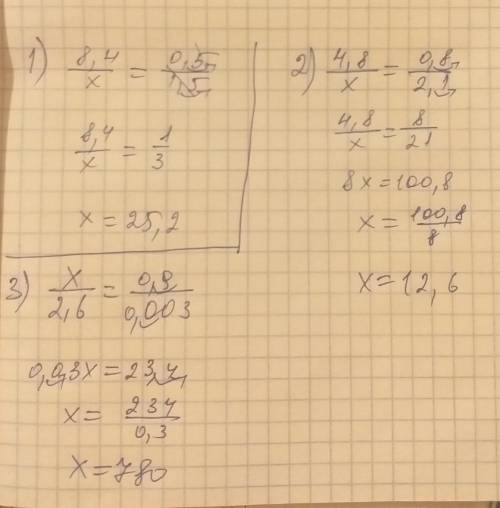 1) 8,4/x = 0,5/1,5
8,4/x = 1/3
x = 25,2
2) 4,8/x = 0,8/2,1
4,8/x = 8/21
8x = 100,8
x = 100,8/8
x = 12,6
3) x/2,6 = 0,9/0,003
0,03x = 23,4
x = 234/0,3
x = 780